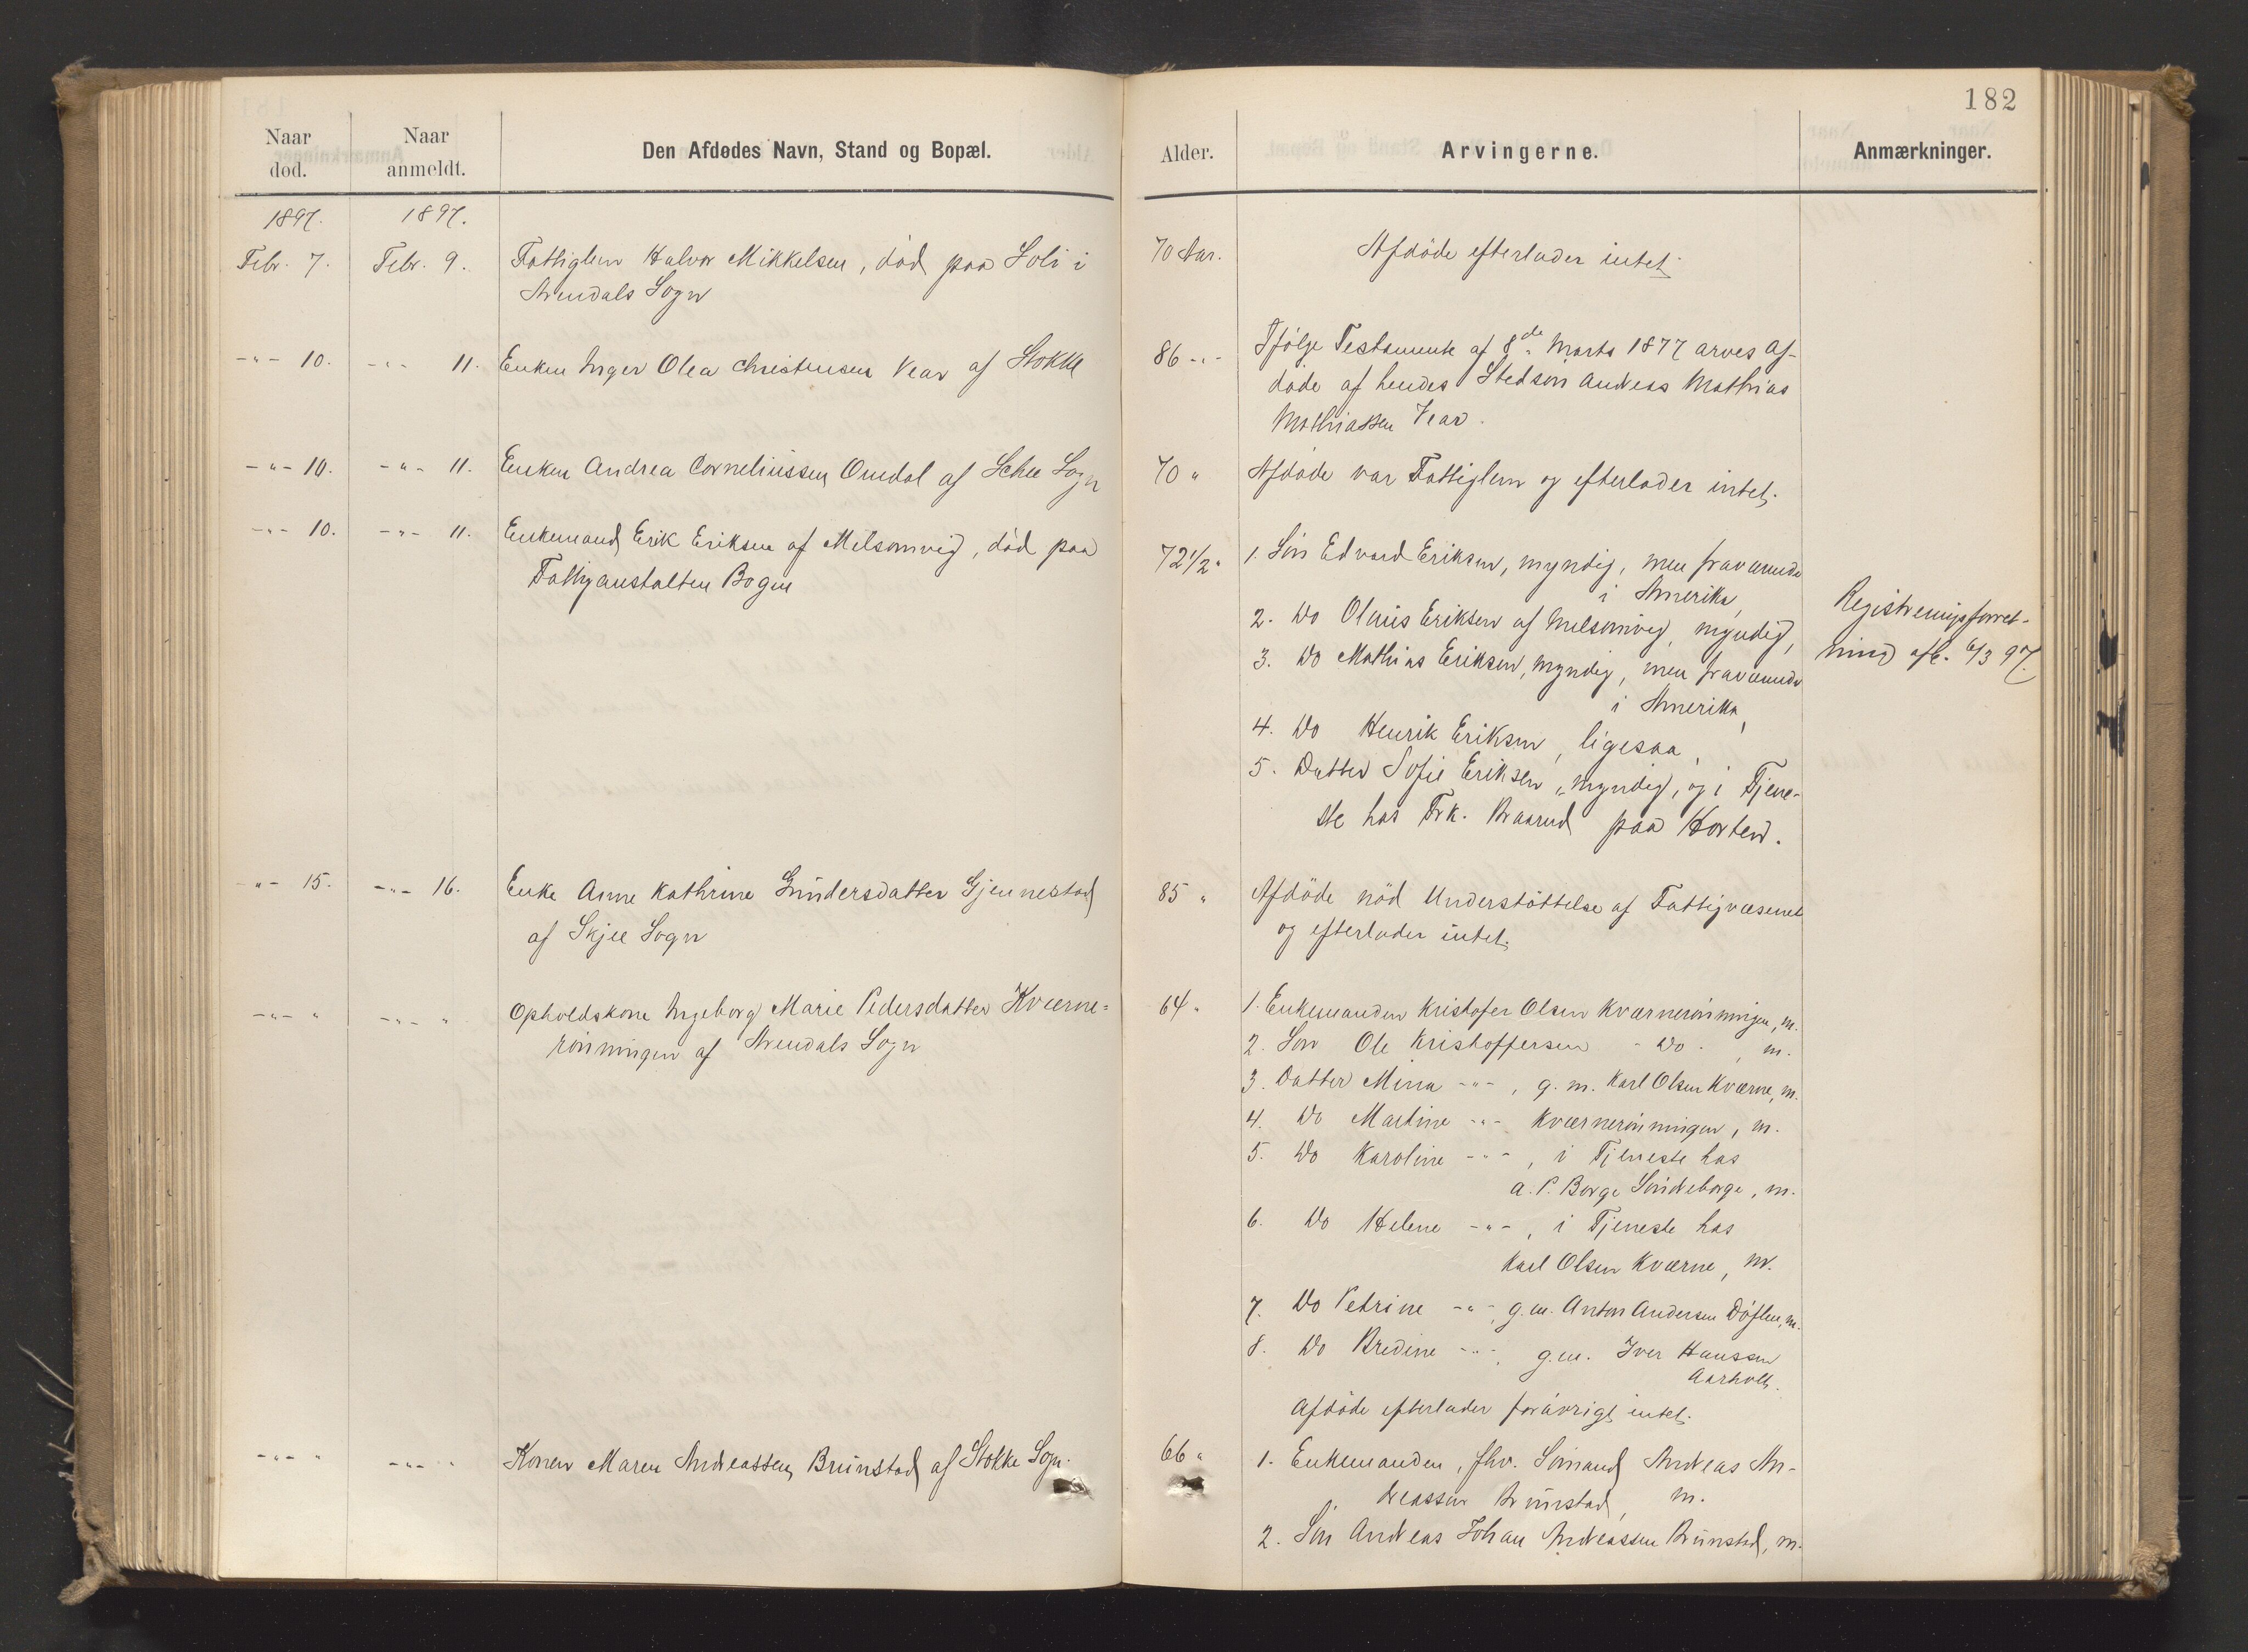 182
Naar død.
Naar anmeldt.
Den Afdødes Navn, Stand og Bopæl.
Alder.
Arvingerne.
Anmærkninger.
1897. 1897.
Febr. 7. Febr. 9. Fattiglem Halvor Mikkelsen, död paa Soli i
Arendals Sogn
70 Aar. Afdöde efterlader intet.
-"- 10. -"- 11. Enken Inger Olea Christensen Vear af Stokke
86 -"- Ifölge Testamente af 8de Marts 1877 arves Af-
döde af hendes Stedsön Andreas Mathias
Mathiassen Vear.
-"- 10. -"- 11. Enken Andrea Corneliussen Omdal af Schee Sogn
70 " Afdöde var Fattiglem og efterlader intet.
-"- 10. -"- 11. Enkemand Erik Eriksen af Melsomvig, död paa
Fattiganstalten Bogen
72 1/2 " 1. Sön Edvard Eriksen, myndig, men fraværende
i Amerika,
2. Do Olaus Eriksen af Melsomvig, myndig,
3. Do Mathias Eriksen, myndig, men fraværende
i Amerika,
4. Do Henrik Eriksen, ligesaa,
5. Datter Sofie Eriksen, myndig, og i Tjene-
ste hos Frk. Braarud paa Horten.
Registreringsforret-
ning afh. 6/3 97.
-"- 15. -"- 16. Enke Anne Kathrine Gundersdatter Gjennestad
af Skjee Sogn
85 " Afdöde nöd Understöttelse af Fattigvæsenet
og efterlader intet.
-"- " -"- " Opholdskone Ingeborg Marie Pedersdatter Kværne-
rönningen af Arendals Sogn
64 " 1. Enkemanden Kristofer Olsen Kværnerönningen, m.
2. Sön Ole Kristoffersen - Do - , m.
3. Datter Mina -"-, g. m. Karl Olsen Kværne, m.
4. Do Martine -"- Kværnerönningen, m.
5. Do Karoline -"-, i Tjeneste hos
A. P. Borge Söndreborge, m.
6. Do Helene -"-, i Tjeneste hos
Karl Olsen Kværne, m.
7. Do Petrine -"-, g.m. Anton Andersen m.
8. Do Bredine -"-, g.m. Iver Hanssen
Aarholt.
Afdöde efterlader forövrigt intet.
-"- " -"- " Konen Maren Andreassen Brunstad af Stokke Sogn.
66 " 1. Enkemanden, fhv. Sömand Andreas An-
dreassen Brunstad, m.
2. Sön Andreas Johan Andreassen Brunstad, m.